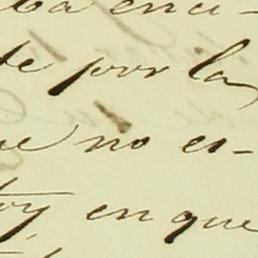 ba enci-
te por la
ue no es-
toy, en que